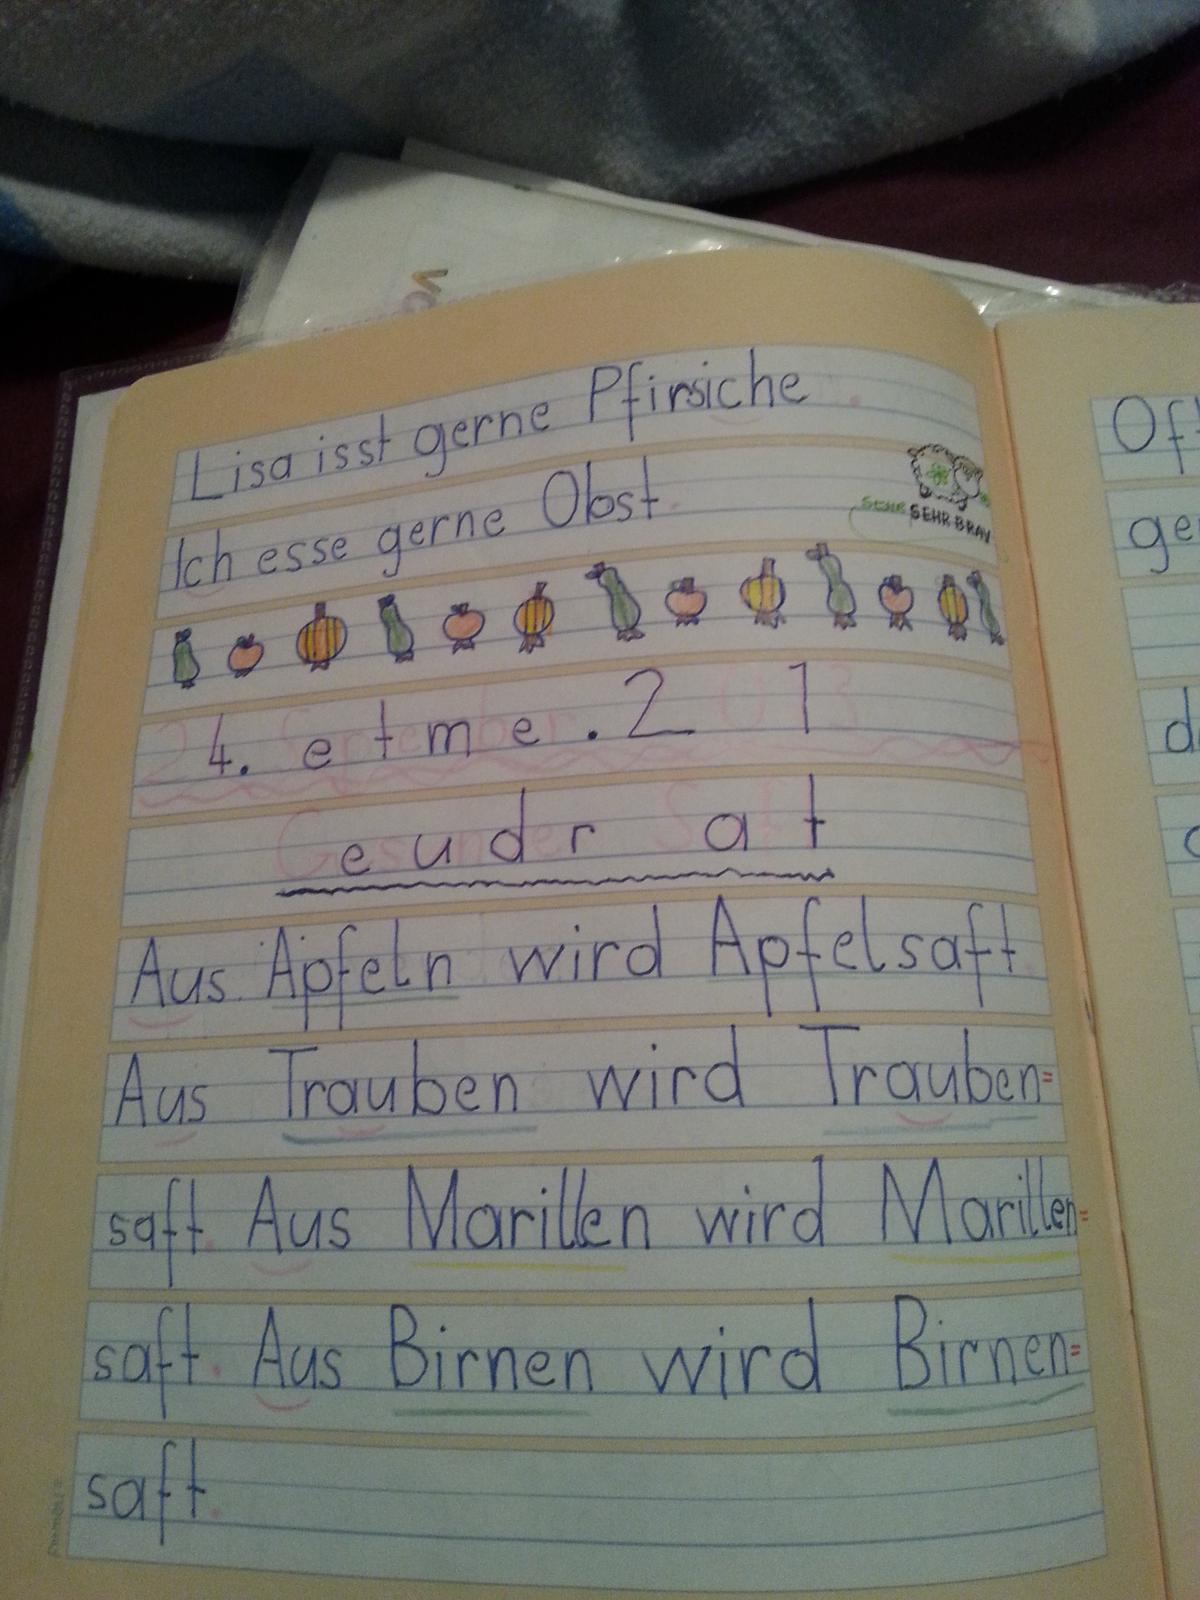 Lisa isst gerne Pfirsiche.
Ich esse gerne Obst.
SEHR SEHR BRAV
24. September. 2013
Gesunder Saft
Aus Äpfeln wird Apfelsaft.
Aus Trauben wird Trauben=
saft. Aus Marillen wird Marillen=
saft. Aus Birnen wird Birnen=
saft.